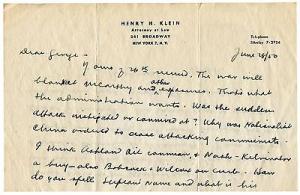 HENRY H. KLEIN
Attorney at Law
261 BROADWAY
NEW YORK 7, N.Y.
Telephone
June 28/50
Dear George -
Yours of 26th recvd. The war will
blanket McCarthy and other exposures. That's what
the administration wants. Was the sudden
attack instigated or connived at? Why was Nationalist
China ordered to cease attacking communists
I think Ashland Oil can + Nash-Kelvinator
a buy - also Bohack + Wilcox on Curb. How
do you spell name and what is his